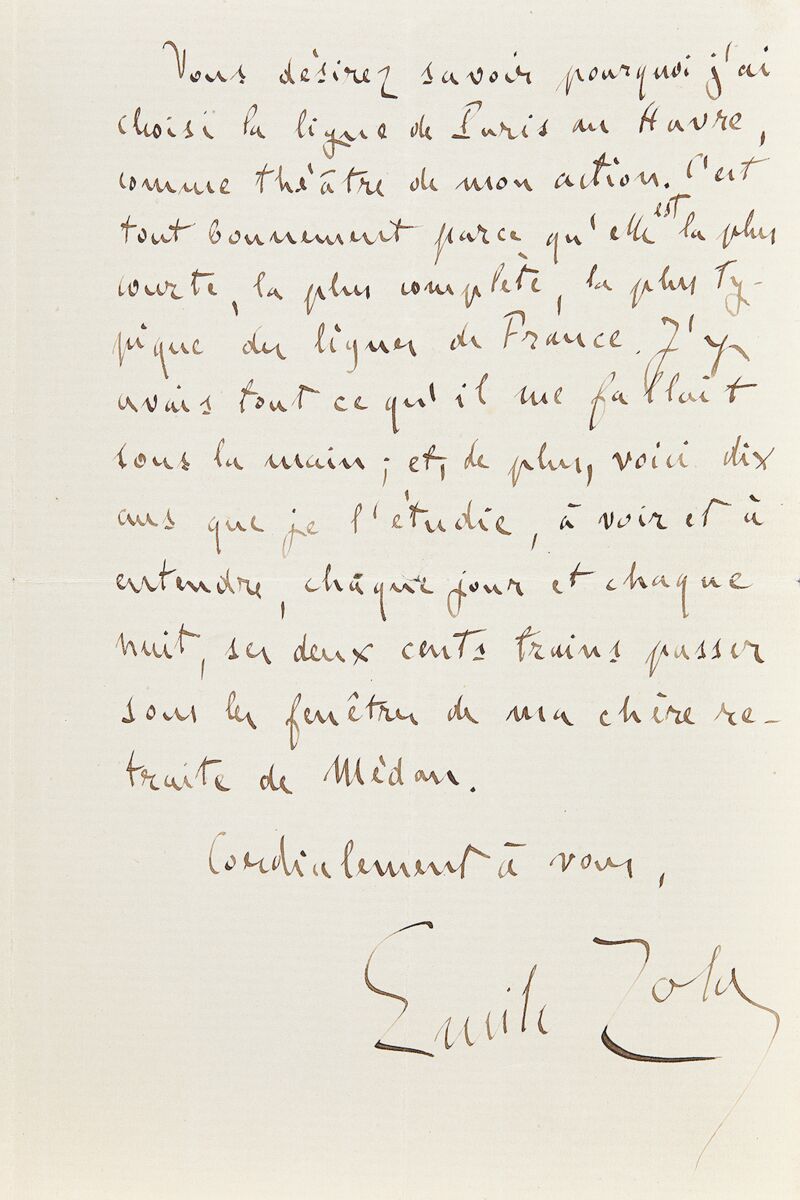 Vous désirez savoir pourquoi j'ai
choisi la ligne de Paris au Havre,
comme théâtre de mon action. C'est
tout bonnement parce qu'elle est la plus
courte, la plus complète, la plus ty-
pique des lignes de France. J'y
avais tout ce qu'il me fallait
sous la main ; et, de plus, voici dix
ans que je l'étudie, à voir et à
entendre, chaque jour et chaque
nuit, ses deux cents trains passer
sous les fenêtres de ma chère re-
traite de Médan.
Cordialement à vous,
Emile Zola